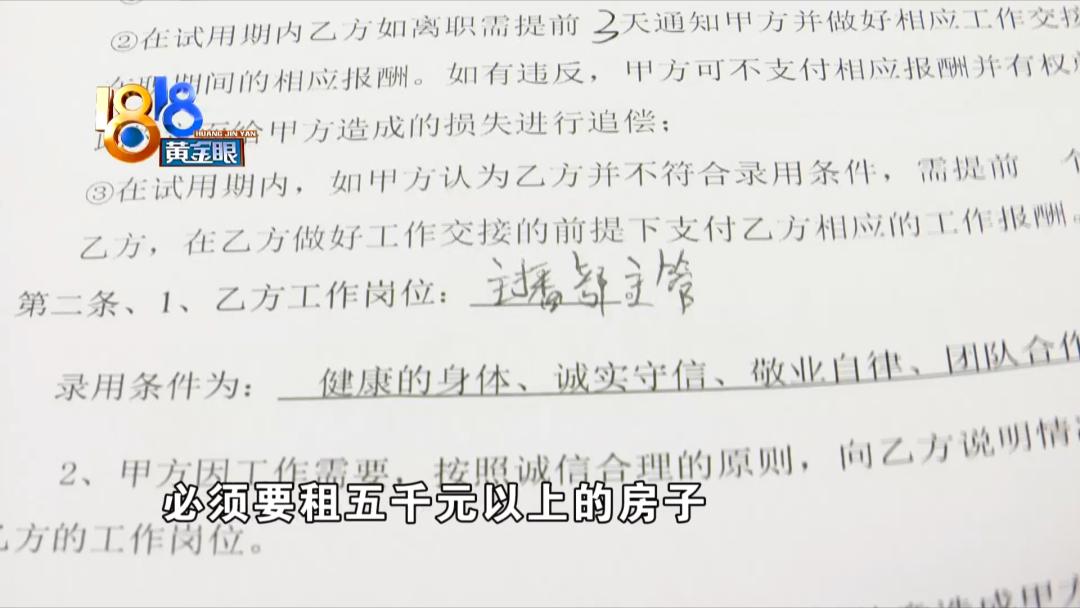 ②在试用期内乙方如离职需提前3天通知甲方并做好相应工作交接
期间的相应报酬。如有违反，甲方可不支付相应报酬并有权
给甲方造成的损失进行追偿；
1818
HUANG JIN YAN
黄金眼
③在试用期内，如甲方认为乙方并不符合录用条件，需提前
乙方，在乙方做好工作交接的前提下支付乙方相应的工作报酬。
第二条、1、乙方工作岗位：主播部主管
录用条件为：健康的身体、诚实守信、敬业自律、团队合作
2、甲方因工作需要，按照诚信合理的原则，向乙方说明情
必须要租五千元以上的房子
乙方的工作岗位。
造成甲方